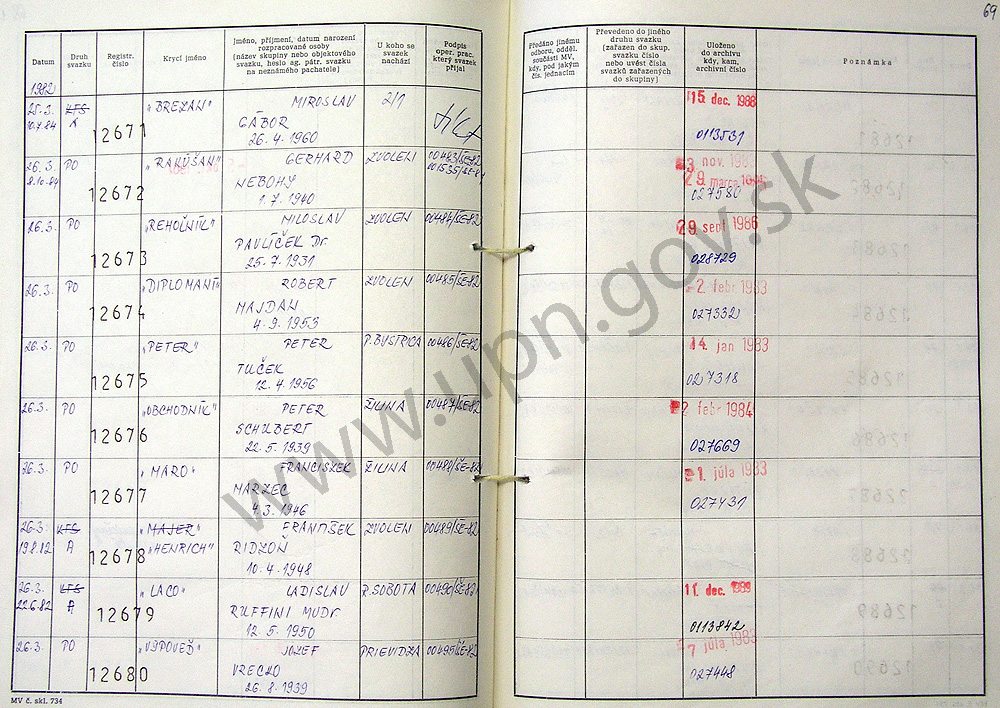 69
Datum
Druh svazku
Registr. číslo
Krycí jméno
Jméno, příjmení, datum narození
rozpracované osoby
(název skupiny nebo objektového
svazku, heslo ag. pátr. svazku
na neznámého pachatele)
U koho se
svazek
nachází
Podpis
oper. prac.
který svazek
přijal
Předáno jinému
odboru, odděl.
součásti MV,
kdy, pod jakým
čís. jednacím
Převedeno do jiného
druhu svazku
(zařazen do skup.
svazku číslo
nebo uvést čísla
svazků zařazených
do skupiny)
Uloženo
do archivu
kdy, kam,
archivní číslo
Poznámka
1982
25.3. KFS „BREZAN" MIROSLAV 2/1 15. dec. 1988
10.4.84 A 12671 GÁBOR 0113531
26. 4. 1960
26.3. PO „RAKÚŠAN" GERHARD ZVOLEN 00483/ŠE-82 3 nov. 1983
8.10.84 12672 NEBOHY 29 marca
1. 7. 1940 027580
26.3. PO „REHOĽNÍK" MILOSLAV ZVOLEN 00484/ŠE-82 29 sept 1986
12673 PAVLÍČEK Dr. 028729
25. 7. 1931
26.3. PO „DIPLOMANT" ROBERT ZVOLEN 00485/ŠE-82 2 febr 1983
12674 MAJDAN 027332
4. 9. 1953
26.3. PO „PETER" PETER P. BYSTRICA 00486/ŠE-82 14. jan 1983
12675 TUČEK 027318
12. 4. 1956
26.3. PO „OBCHODNÍK" PETER ŽILINA 00487/ŠE-82 2 febr 1984
12676 SCHUBERT 027669
22. 5. 1939
26.3. PO „MARO" FRANCISZEK ŽILINA 00488/ŠE-82 1. júla 1983
12677 MARZEC 027431
4. 3. 1946
26.3. KFS „MAJER" FRANTIŠEK ZVOLEN 00489/ŠE-82
19.8.82 A 12678 „HENRICH" RIDZOŇ
10. 4. 1948
26.3. KFS „LACO" LADISLAV R. SOBOTA 00490/ŠE-82 11. dec. 1989
22.6.82 A 12679 RUFFINI MUDr. 0113842
12. 5. 1950
26.3. PO „VÝPOVEĎ" JOZEF PRIEVIDZA 00495/ŠE-82 7 júla 1983
12680 VRECKO 027448
26. 8. 1939
MV č. skl. 734
www.upn.gov.sk